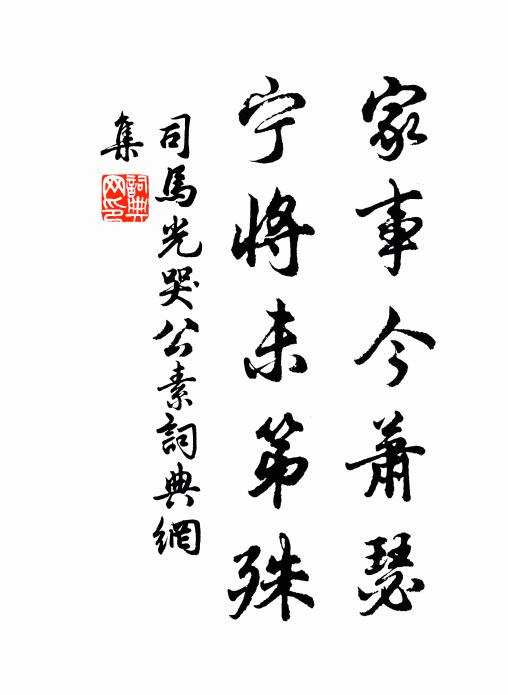 家事今蕭瑟
宁將未第殊
司馬光哭公素詞典網
集
詞典
网印